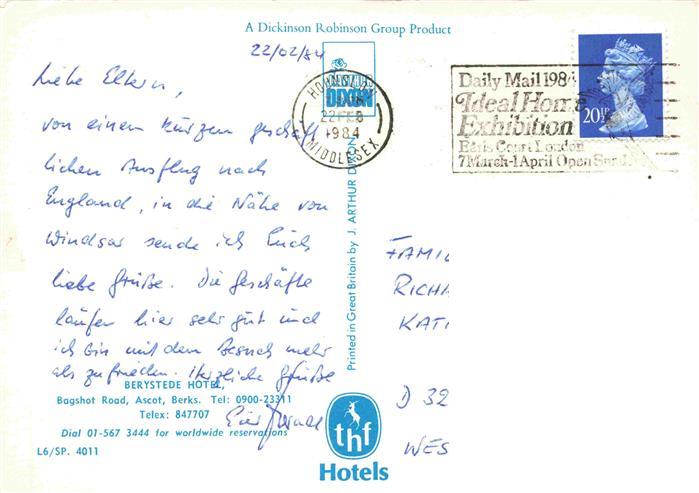 A Dickinson Robinson Group Product
22/02/84
Liebe Eltern,
von einem kurzen geschäft
lichen Ausflug nach
England, in die Nähe von
Windsor sende ich Euch
liebe Grüße. Die Geschäfte
laufen hier sehr gut und
ich bin mit dem Besuch mehr
als zufrieden. Herzliche Grüße
Euer
BERYSTEDE HOTEL,
Bagshot Road, Ascot, Berks. Tel: 0900-23311
Telex: 847707
Dial 01-567 3444 for worldwide reservations
L6/SP. 4011
DIXON
Printed in Great Britain by J. ARTHUR DIXON
HOUNSLOW
22 FEB
1984
MIDDLESEX
Daily Mail 1984
Ideal Home
Exhibition
Earls Court London
7 March-1 April Open Sund
20½P
FAMIL
RICHA
KATI
D 32
WES
thf
Hotels